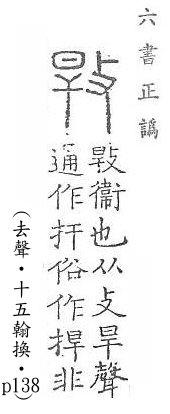 六書正譌
㪋
㪋衞也从攴旱聲
通作扞俗作捍非
(去聲・十五翰換・
p138)